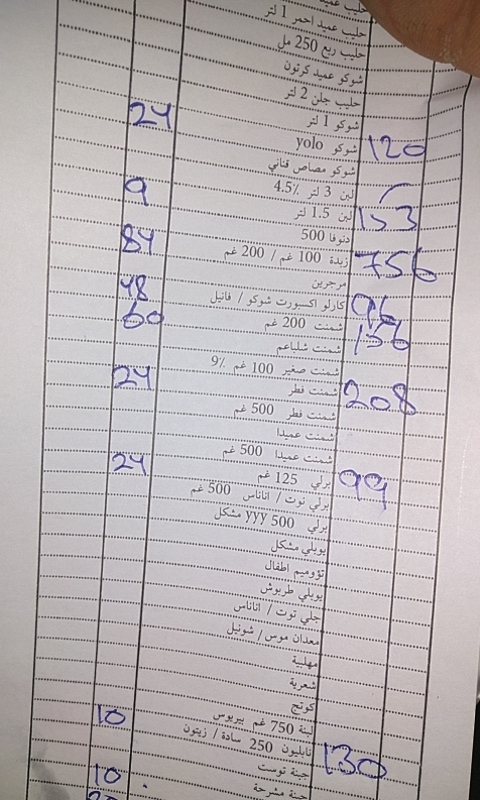 حليب عميد احمر 1 لتر
حليب ربع 250 مل
شوكو عميد كرتون
حليب جلن 2 لتر
شوكو 1 لتر
120 شوكو yolo 24
شوكو مصاص فناني
لبن 3 لتر 4.5%
153 لبن 1.5 لتر 9
دنوفا 500
756 زبدة 100 غم / 200 غم 84
مرجرين
96 كارلو اكسبورت شوكو / فانيل 48
156 شمنت 200 غم 60
شمنت شلباعم
شمنت صغير 100 غم 9%
208 شمنت فطر 24
شمنت فطر 500 غم
شمنت عميدا
شمنت عميدا 500 غم
99 برلي 125 غم 24
برلي توت / اناناس 500 غم
برلي 500 yyy مشكل
يوبلي مشكل
تؤوميم اطفال
يوبلي طربوش
جلي توت / اناناس
معدان موس / شونيل
مهلبية
شعرية
كوتج
لبنة 750 غم بيريوس 10
130 نابليون 250 سادة / زيتون
جبنة توست
جبنة مشرحة 10